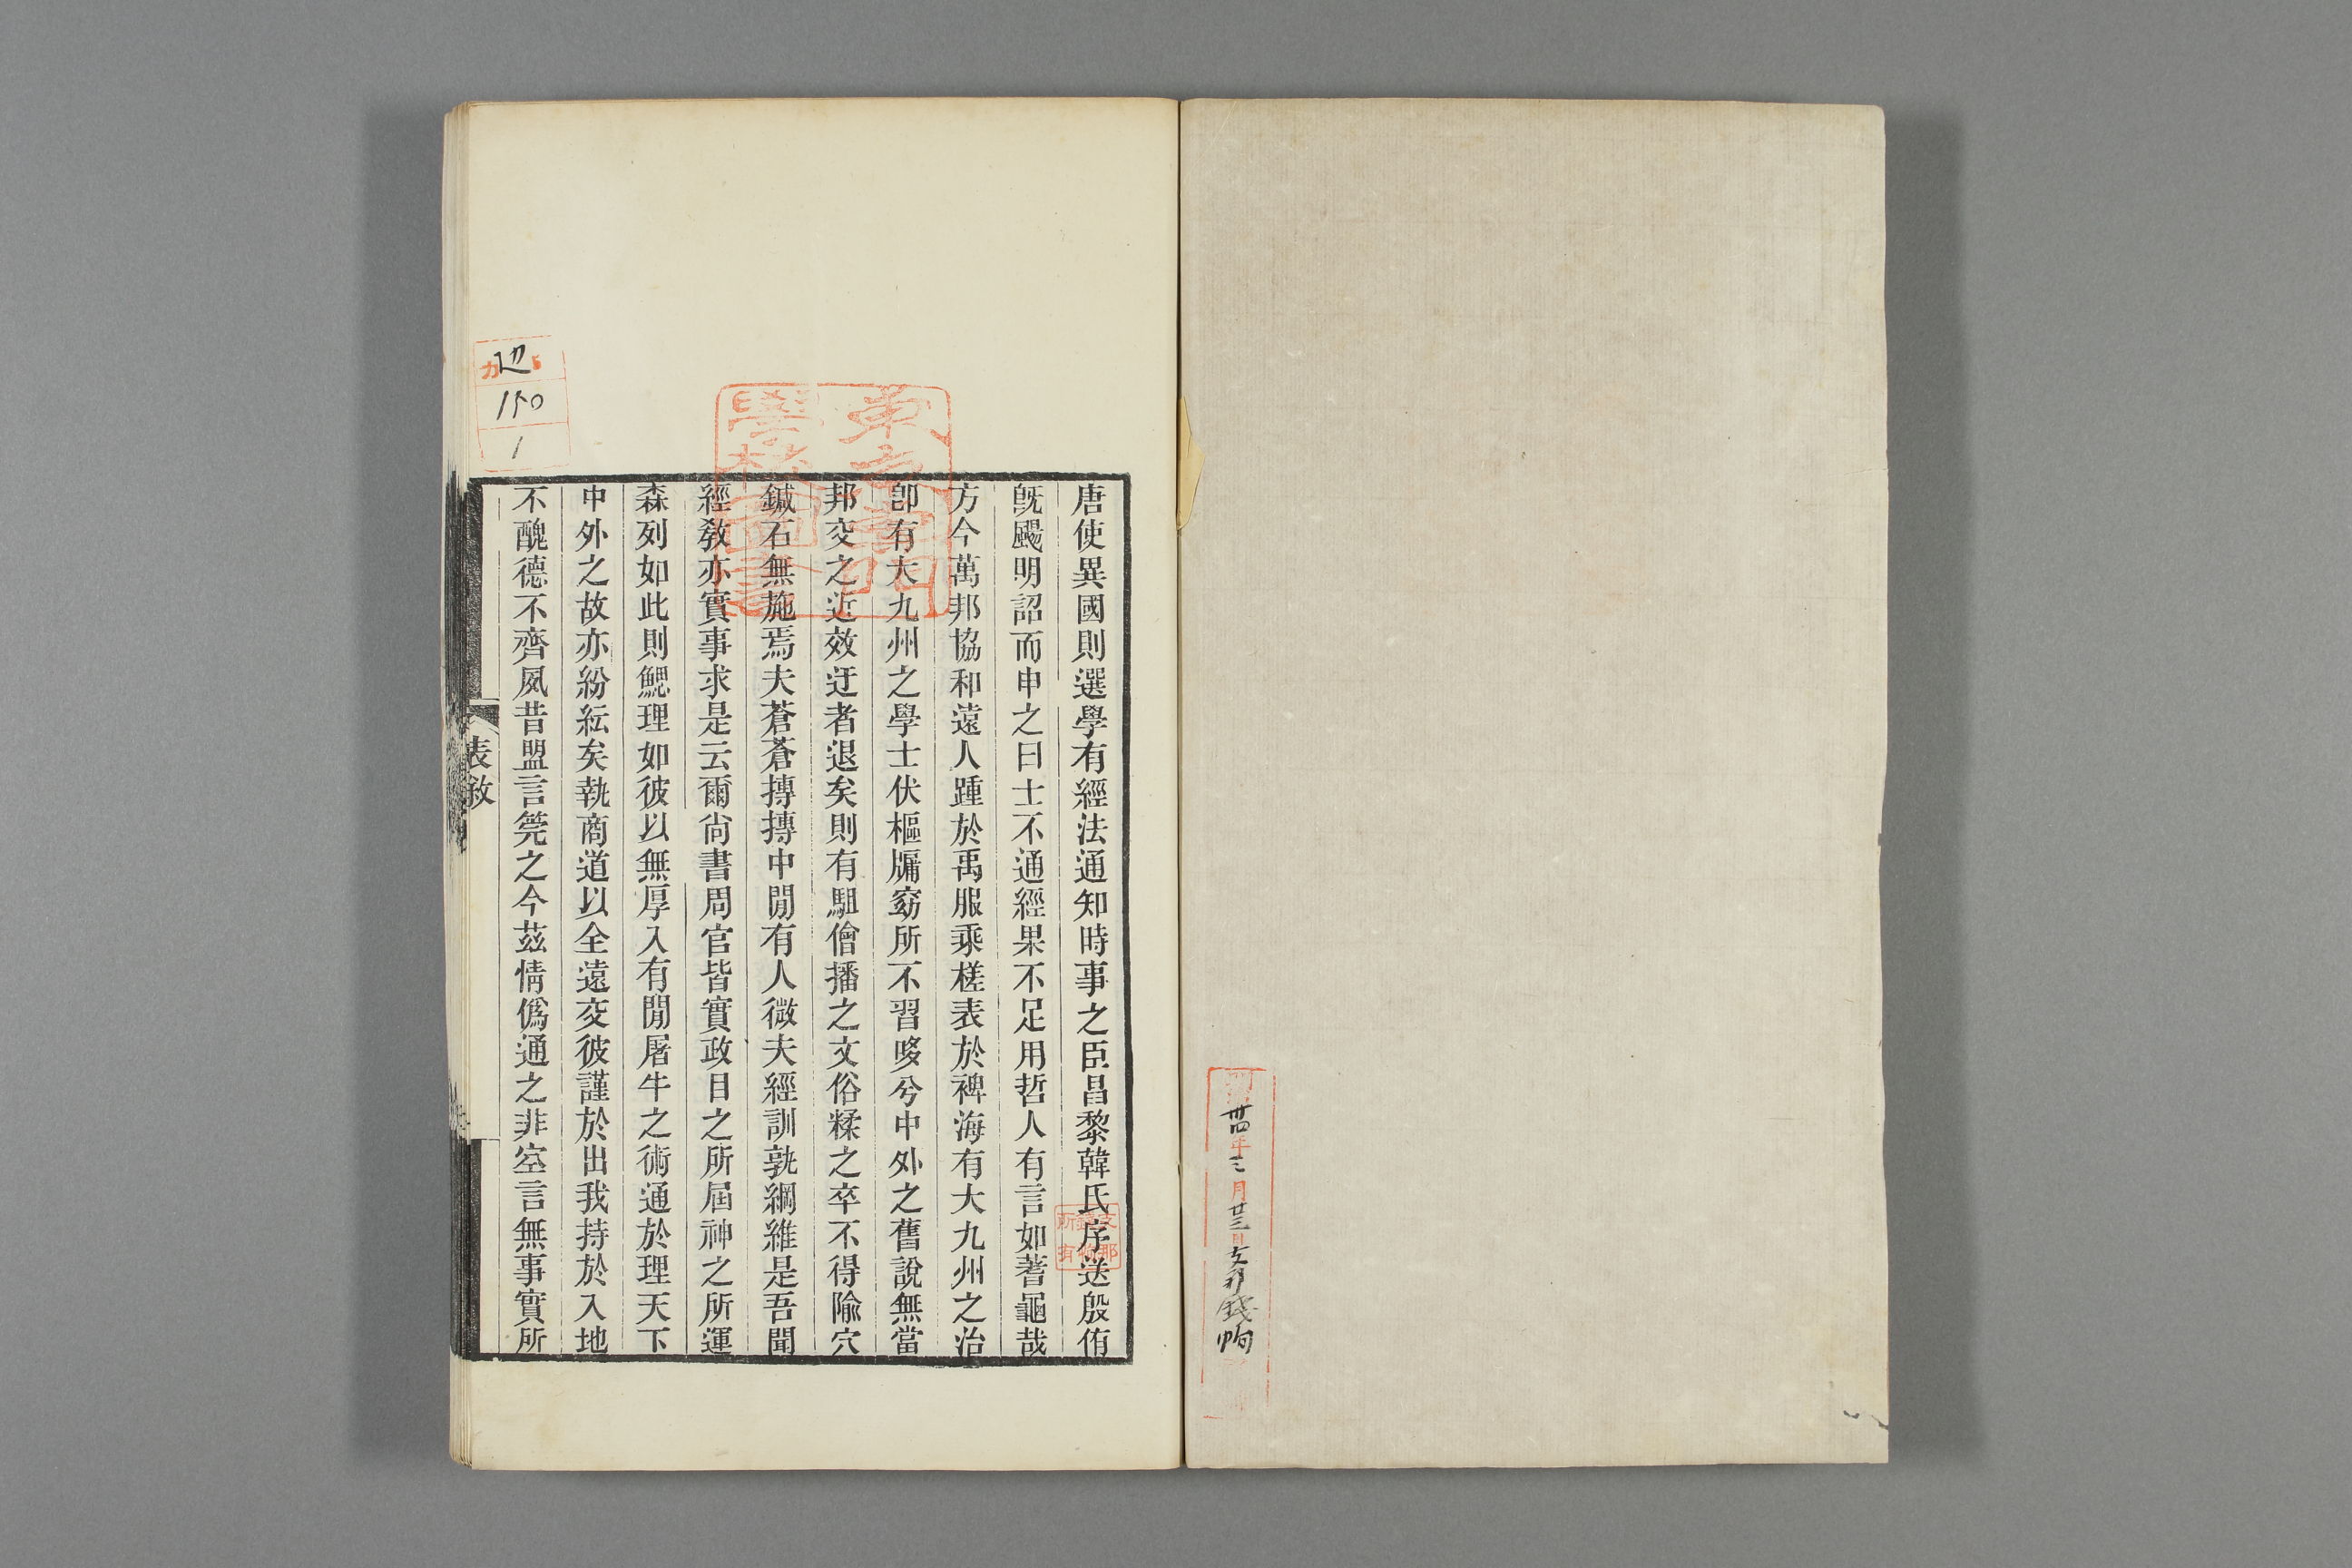 卌四年三月廿三日
唐使異國則選學有經法通知時事之臣昌黎韓氏序送殷侑
旣颺明詔而申之曰士不通經果不足用哲人有言如蓍龜哉
方今萬邦協和遠人踵於禹服乘槎表於裨海有大九州之治
卽有大九州之學士伏樞牖窈所不習哆兮中外之舊說無當
邦交之近效迂者退矣則有駔儈播之文俗糅之卒不得隃穴
鍼石無施焉夫蒼蒼摶摶中閒有人微夫經訓孰綱維是吾聞
經敎亦實事求是云爾尙書周官皆實政目之所屆神之所運
森列如此則鰓理如彼以無厚入有閒屠牛之術通於理天下
中外之故亦紛紜矣執商道以全遠交彼謹於出我持於入地
不醜德不齊夙昔盟言筦之今茲情僞通之非空言無事實所
表敘
150
1